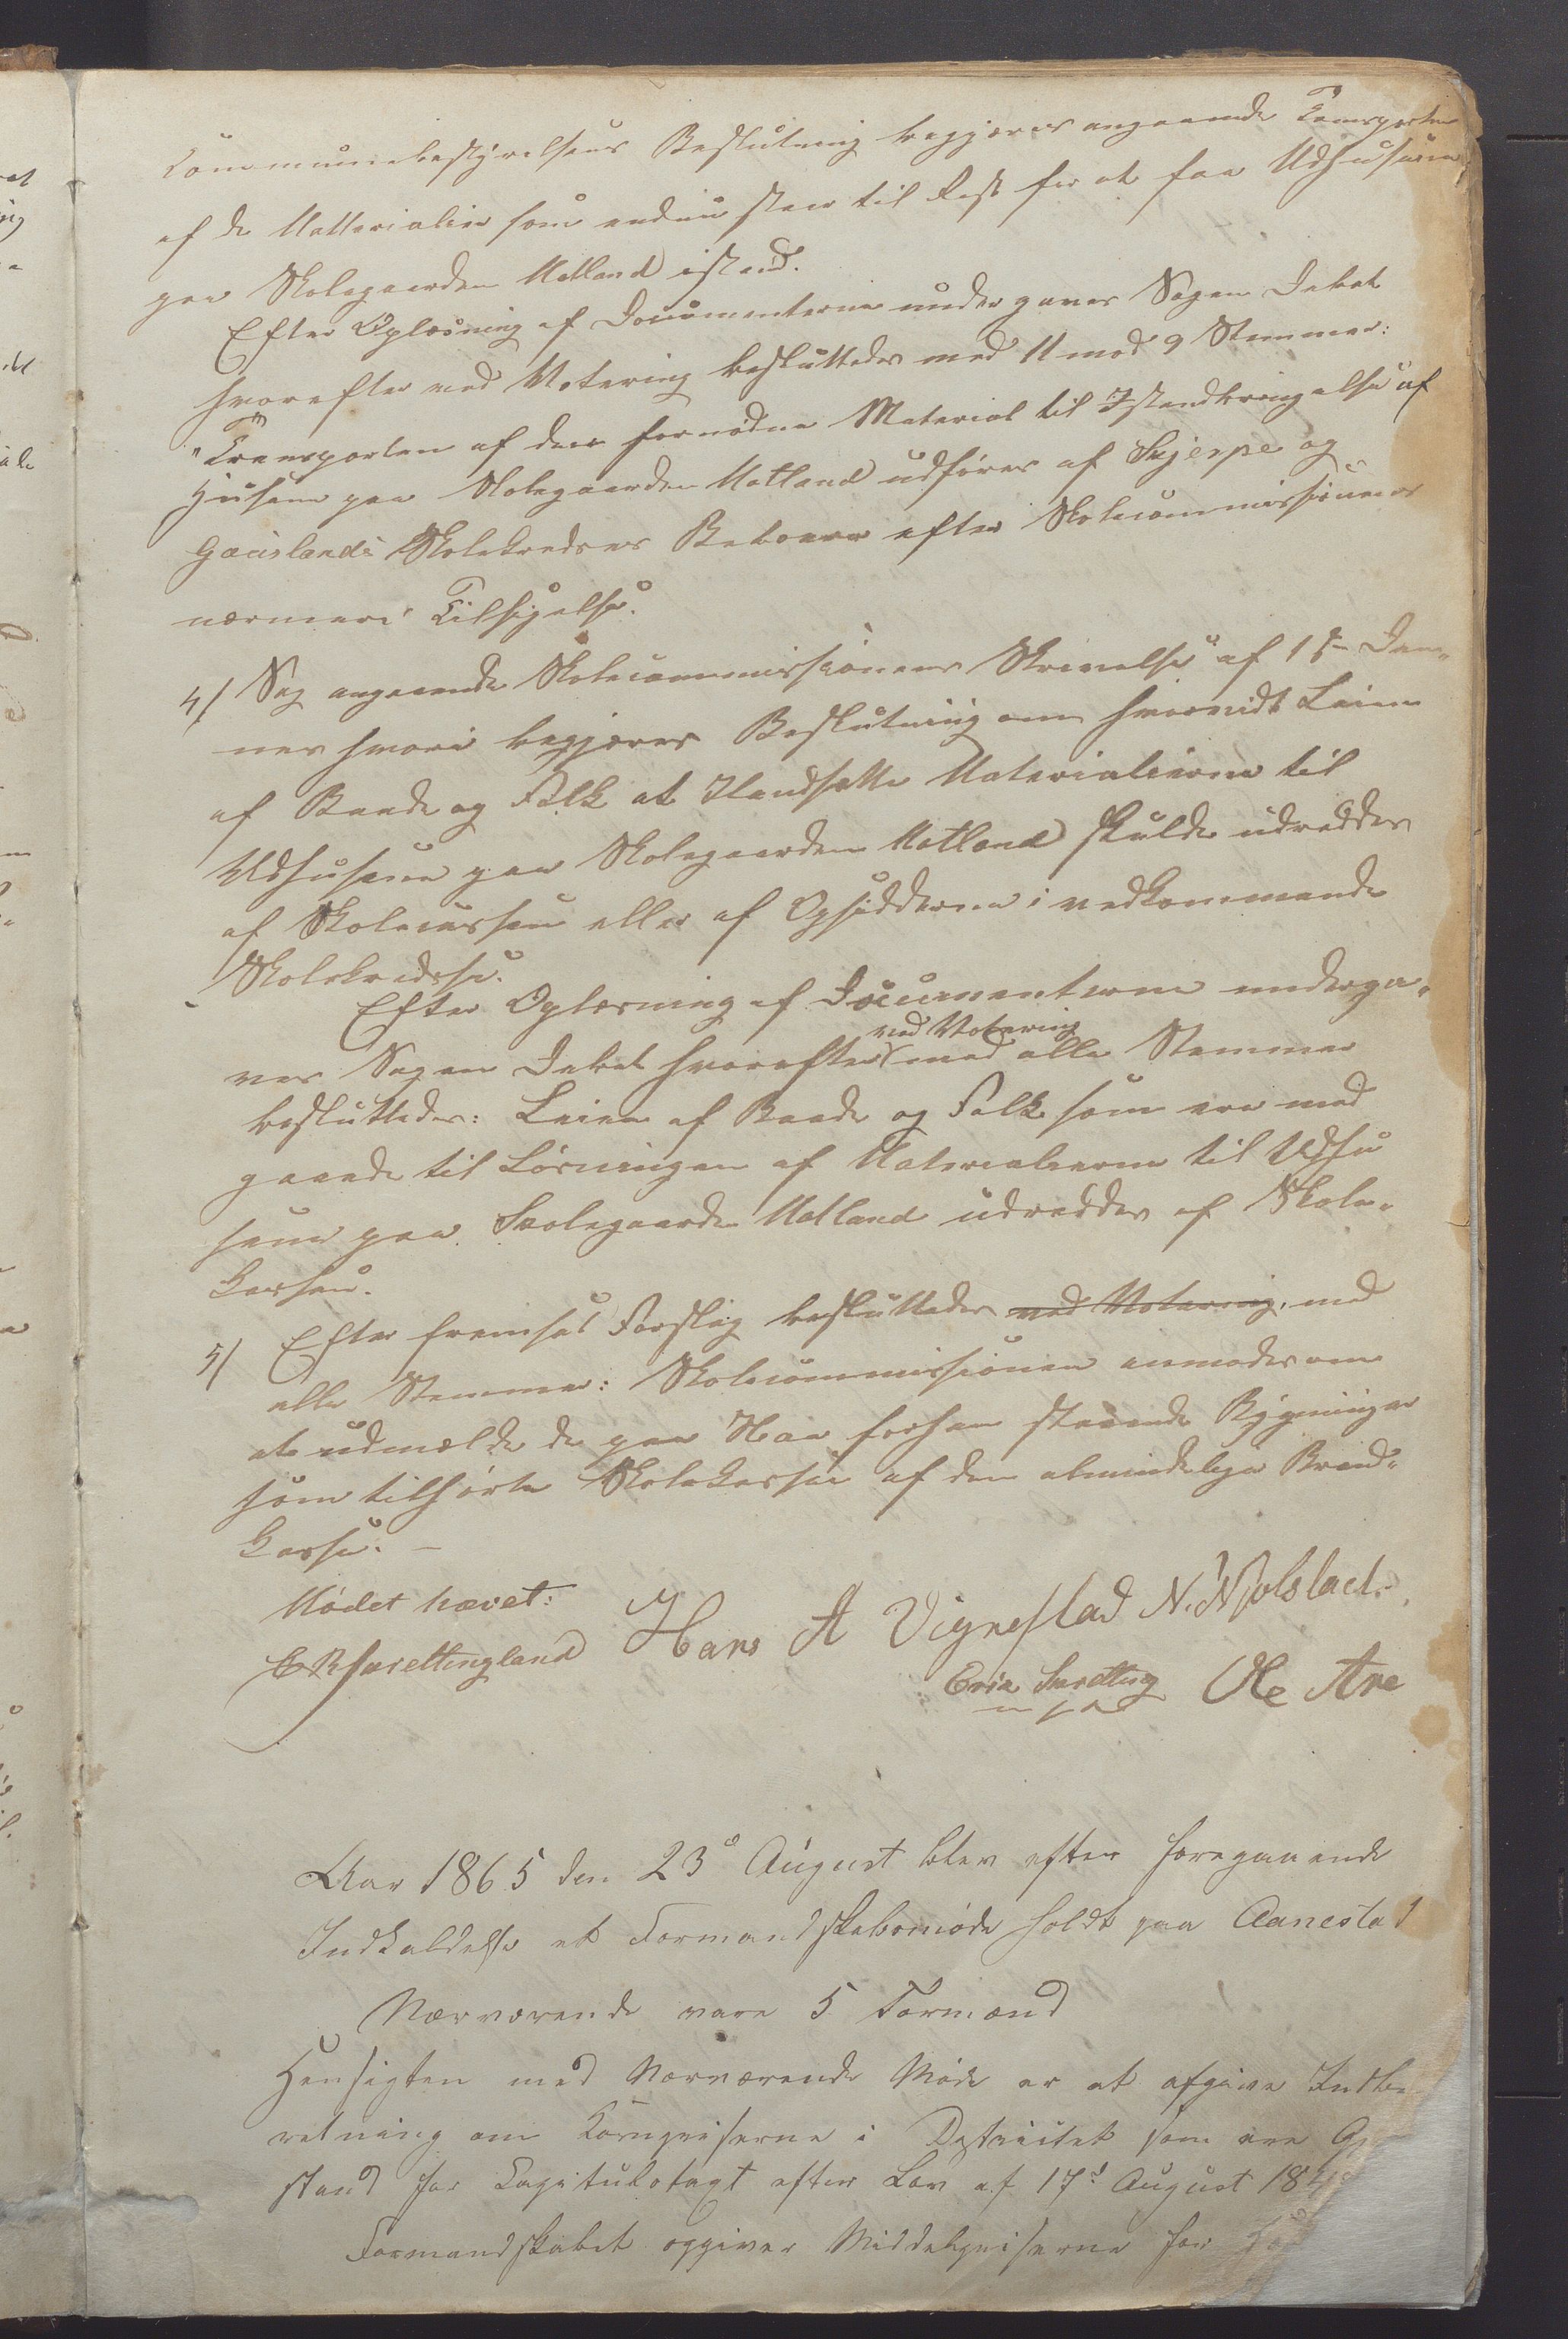 Communebestyrelsens Beslutning begjæres angaaende Transporten
af de Matterialier som endnu staar til Rest for at faa Udhusene
paa Skolegaarden Motland istand.
Efter Oplæsning af Documenterne undergaves Sagen Debat
hvorefter ved Votering besluttedes med 11 mod 9 Stemmer:
"Transporten af den fornødne Material til Istandbringelse af
Husene paa Skolegaarden Motland udføres af Skjerpe og
Gauslands Skolekredses Beboere efter Skolecommissionens
nærmere Tilsigelse.
4/ Sag angaaende Skolecommissionens Skrivelse af 15 Den-
nes hvori begjæres Beslutning om hvorvidt Leien
af Baade og Folk at Ilandsætte Materialierne til
Udhusene paa Skolegaarden Motland skulde udreddes
af Skolecassen eller af Opsidderne i vedkommende
Skolekredse.
Efter Oplæsning af Documenterne underga-
ves Sagen Debat hvorefter ved Votering med alle Stemmer
besluttedes: Leien af Baade og Folk som ere med
gaaede til Losningen af Materialierne til Udhu
sene paa Skolegaarden Motland udreddes af Skole-
kassen.
5/ Efter fremsat Forslag besluttedes ved Votering med
alle Stemmer: Skolecommissionen anmodes om
at udmelde de paa Haa forhen staaende Bygninger
som tilhørte Skolekassen af den almindelige Brand-
kasse. -
Mødet hævet:
Hans A Vignestad N. Njolstad
Svik Særetting Ole Are
Aar 1865 den 23d August blev efter foregaaende
Indkaldelse et Formandskabsmøde holdt paa Aanestad
Nærværende vare 5 Formænd
Hensigten med Nærværende Møde er at afgive Indbe-
retning om Kornpriserne i Destrictet som ere
stand for Capitulstagt efter Lov af 17d August 18
Formandskabet opgiver Middelpriserne for